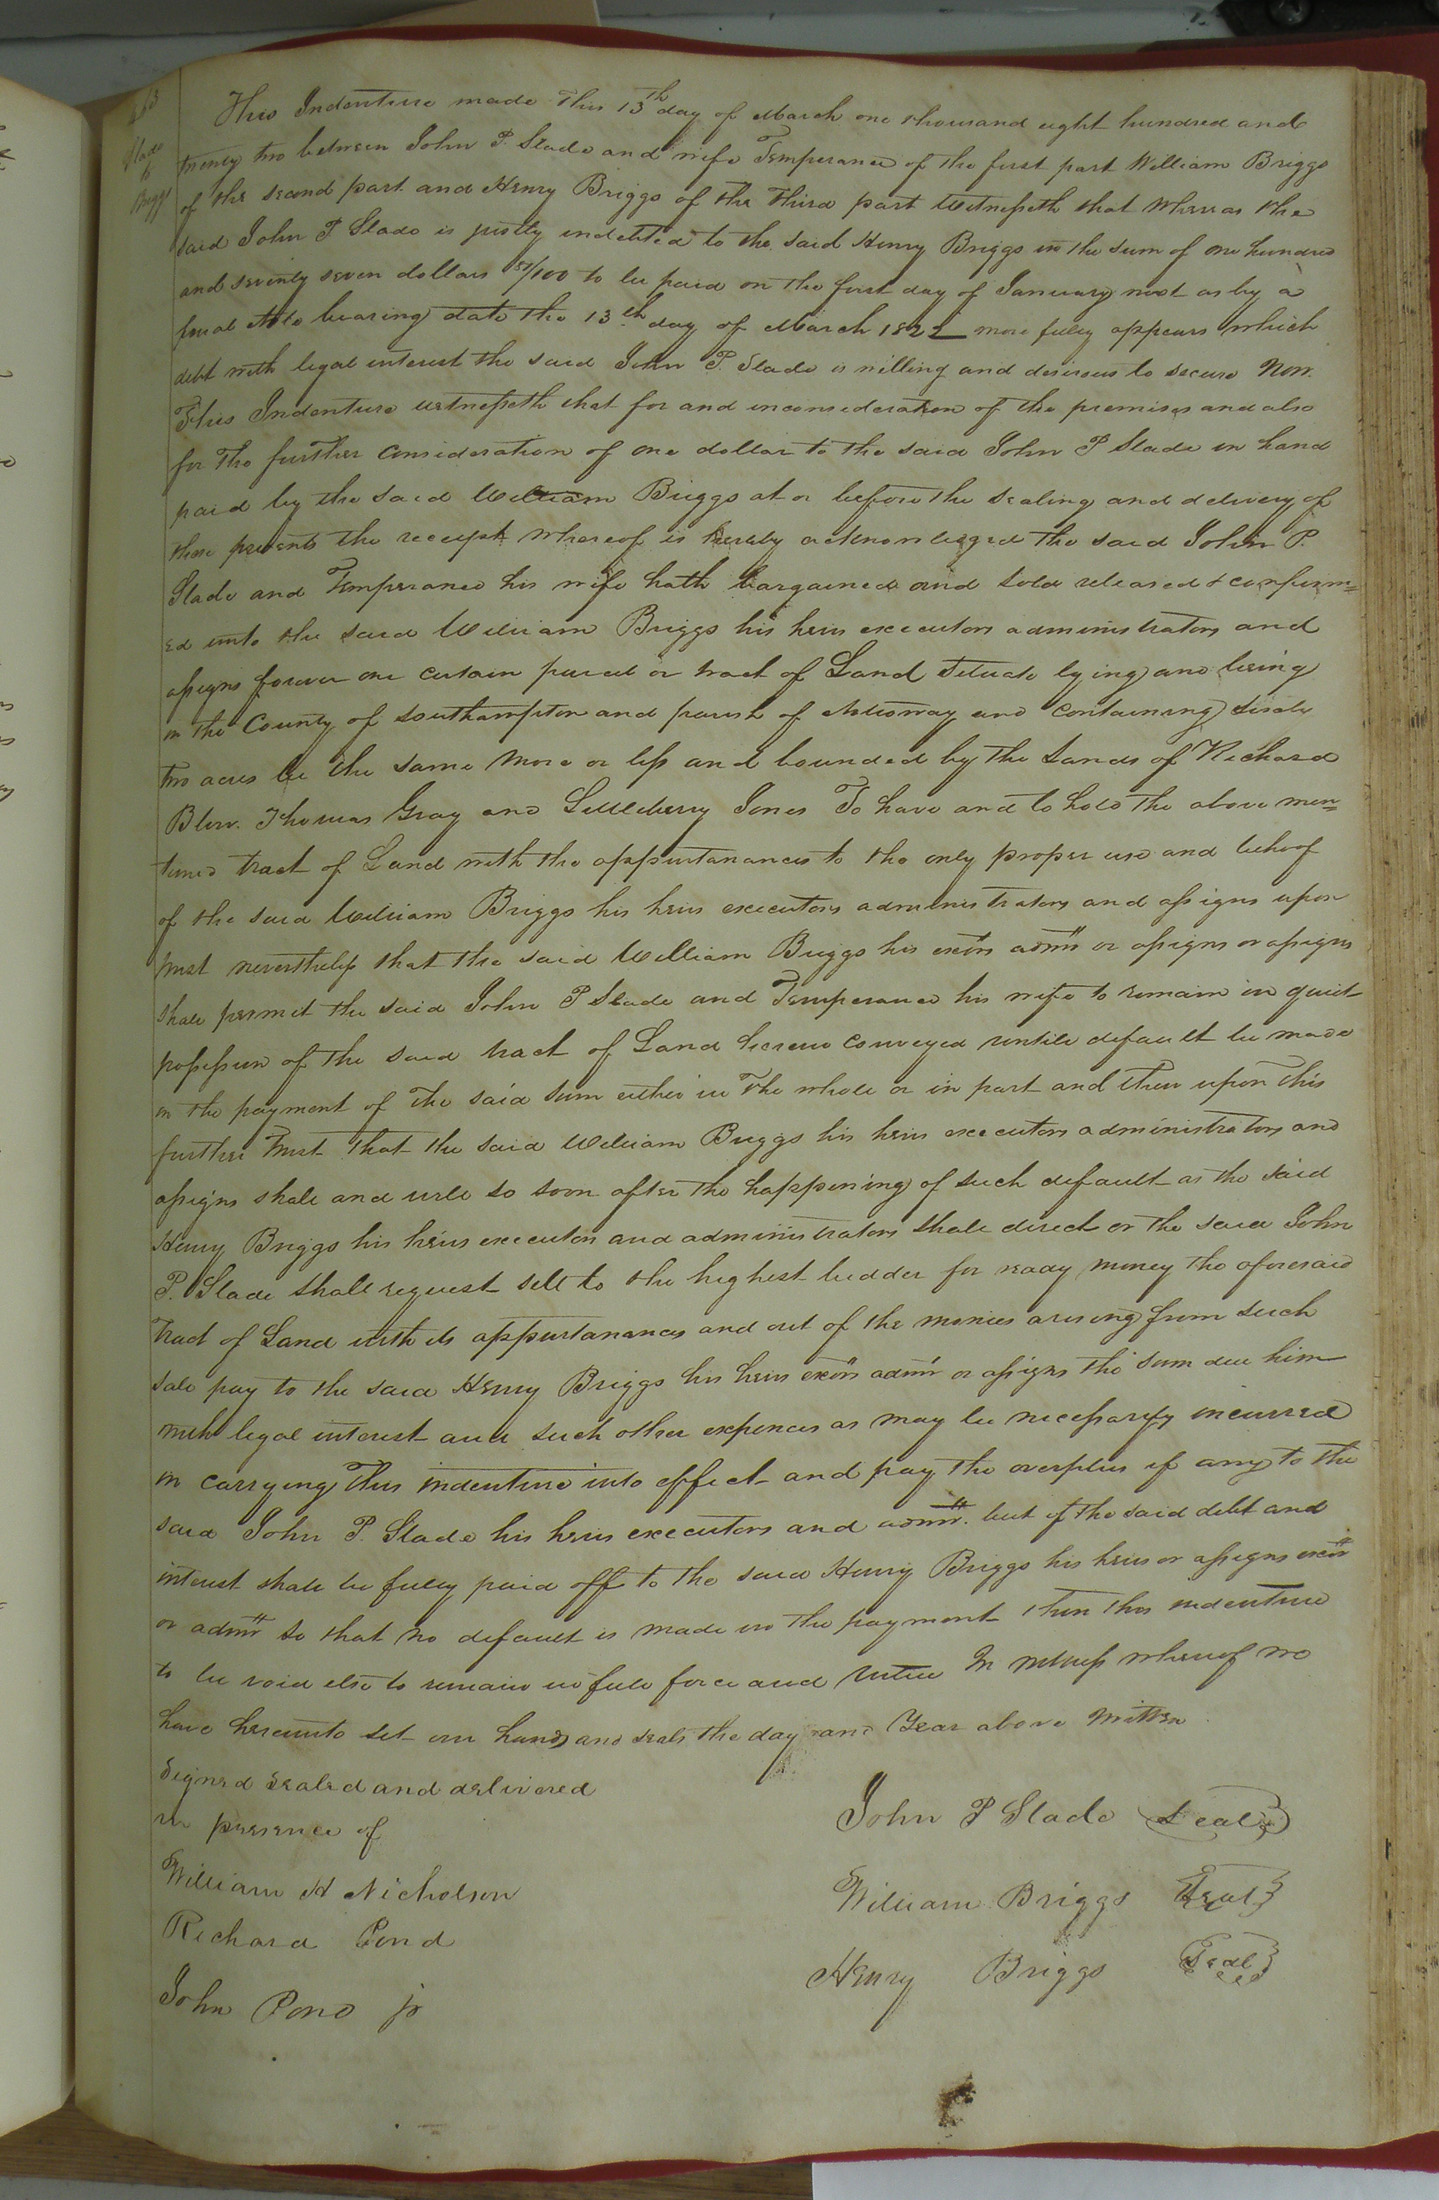 Slade
to
Briggs
This Indenture made this 13th day of March one thousand eight hundred and
twenty two between John P. Slade and wife Temperance of the first part William Briggs
of the second part and Henry Briggs of the third part Witnesseth that whereas the
said John P Slade is justly indebted to the said Henry Briggs in the sum of one hundred
and seventy seven dollars /100 to be paid on the first day of January next as by a
bearing date the 13th day of March 1822 more fully appears which
debt with legal interest the said John P. Slade is willing and desirous to secure Now
This Indenture witnesseth that for and inconsideration of the premises and also
for the further consideration of one dollar to the said John P Slade in hand
paid by the said William Briggs at or before the sealing and delivery of
these presents the receipt whereof is hereby acknowledged the said John P.
Slade and Temperance his wife hath bargained and sold released & confirm=
ed unto the said William Briggs his heirs executors administrators and
assigns forever one certain parcel or tract of Land situate lying and being
in the County of Southampton and parish of Nottoway and containing
two acres be the same more or less and bounded by the Lands of Richard
Blow. Thomas Gray and Littleberry Jones To have and to hold the above men=
tioned tract of Land with the appurtanances to the only proper use and behoof
of the said William Briggs his heirs executors administrators and assigns upon
trust nevertheless that the said William Briggs his exōrs admrs or assigns or assigns
shall permit the said John P Slade and Temperance his wife to remain in quiet
possession of the said tract of Land herein conveyed untill default be made
in the payment of the said sum either in the whole or in part and then upon this
further trust that the said William Briggs his heirs executors administrators and
assigns shall and will so soon after the happening of such default as the said
Henry Briggs his heirs executors and administrators shall direct or the said John
P. Slade shall request sell to the highest bidder for ready money the aforesaid
Tract of Land with its appurtanances and out of the monies arising from such
sale pay to the said Henry Briggs his heirs exōrs admrs or assigns the sum due him
with legal interest and such other expences as may be necessarily incurred
in carrying this indenture into effect and pay the overplus if any to the
said John P. Slade his heirs executors and admrs. but if the said debt and
interest shall be fully paid off to the said Henry Briggs his heirs or assigns exōrs
or admrs so that no default is made in the payment then this indenture
to be void else to remain in full force and virtue In witness whereof we
have hereunto set our hands and seals the day and Year above written
Signed sealed and delivered
in presence of
William H Nicholson
Richard Pond
John Pond jr
John P Slade Seal
William Briggs Seal
Henry Briggs Seal